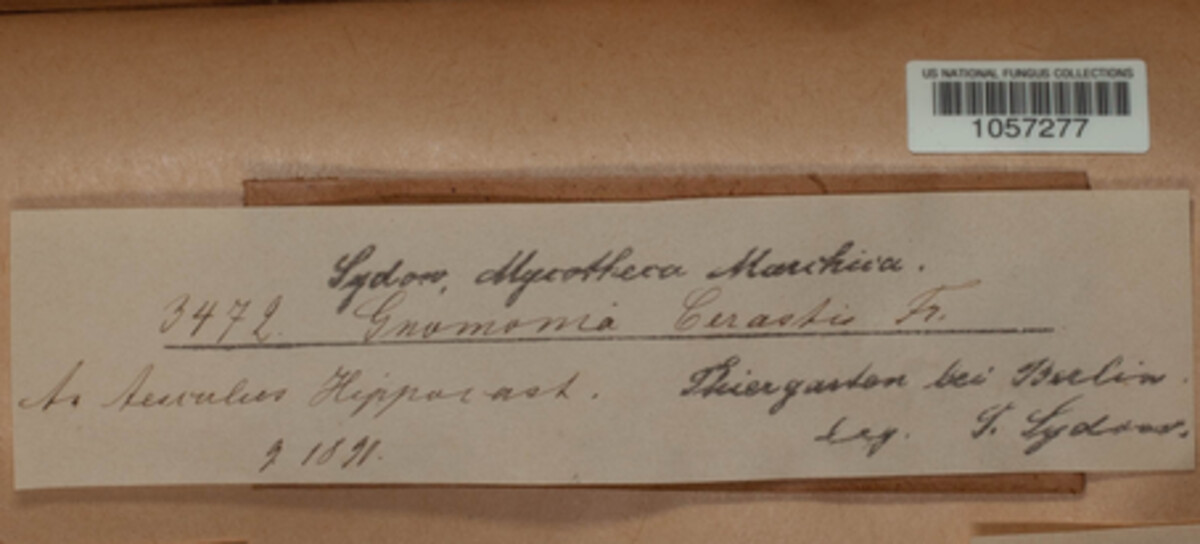 US NATIONAL FUNGUS COLLECTIONS
1057277
Sydow, Mycotheca Marchica.
3472. Gnomonia Cerastis Fr.
An Aesculus Hippocast. Thiergarten bei Berlin.
9 1891. leg. P. Sydow.